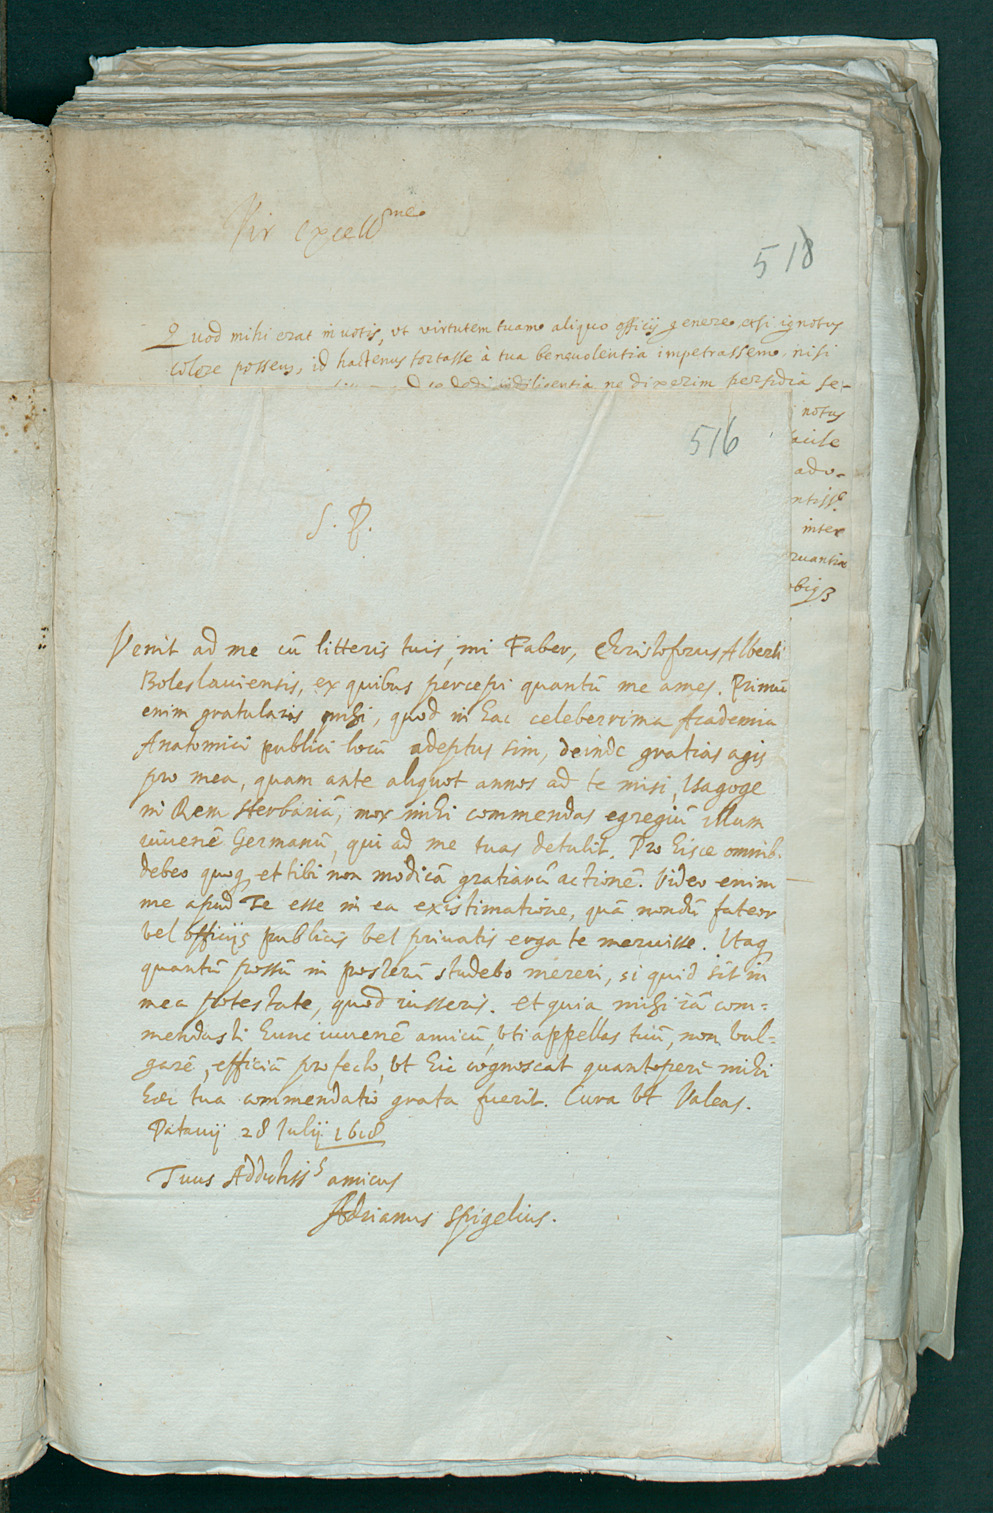 Vir excell^me
518
Quod mihi erat in uotis, vt virtutem tuam aliquo officij genere etsi ignotus
colere possem, id hactenus fortasse à tua beneuolentia impetrassem, nisi
diligentia ne dixerim perfidia se-
notus
facile
adu-
ntiss^e
inter
ruantia
obisq3
516
S. P.
Venit ad me cũ litteris tuis, mi Faber, Christoforus Alberti
Boleslauiensis, ex quibus percepi quantũ me ames. Primũ
enim gratularis mihi, quod in hac celeberrima Academia
Anatomici publici locũ adeptus sim, deinde gratias agis
pro mea, quam ante aliquot annos ad te misi, Isagoge
in Rem Herbariã, mox mihi commendas egregiũ illum
iuuenẽ Germanũ, qui ad me tuas detulit. Pro hisce omnib.
debeo quoq, et tibi non modicã gratiarũ actionẽ. Video enim
me apud Te esse in ea existimatione, quã nondũ fateor
vel officijs publicis vel priuatis erga te meruisse. Itaq
quantũ possũ in posterũ studebo mereri, si quid sit in
mea potestate, quod iusseris. Et quia mihi iã com=
mendasti hunc iuuenẽ amicũ, vti appellas tuũ, non vul=
garẽ, efficiã profecto, vt hic cognoscat quantopere mihi
haec tua commendatio grata fuerit. Cura vt Valeas.
Patauij 28 Iulij 1618
Tuus Addictiss^s amicus
Adrianus Spigelius.